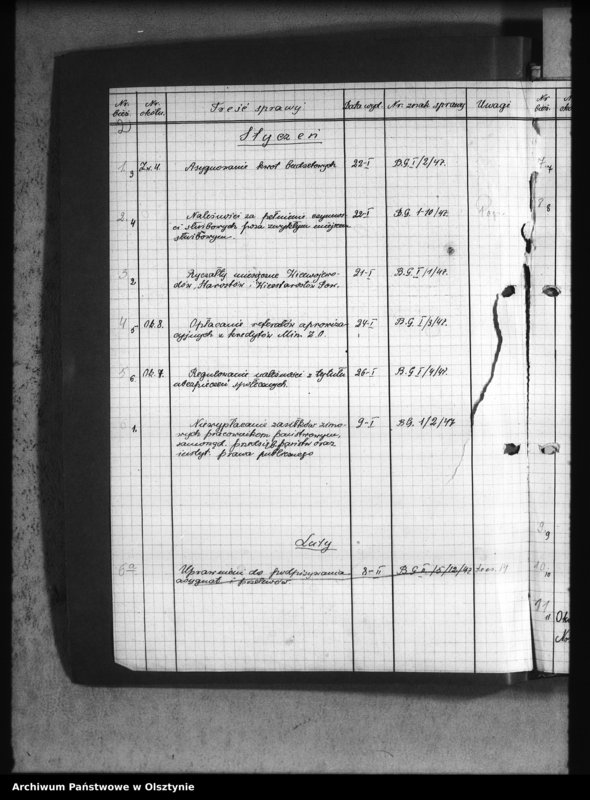 Nr. bież. Nr. okóln. Treść sprawy Data wyd. Nr. znak sprawy Uwagi Nr. bież.
Styczeń
1. 3 Zn. 4. Asygnowanie kwot budżetowych 22-I B.G. I/2/47.
2. 4 Należności za pełnienie czynnoś-
ci służbowych poza zwykłym miejscem
służbowym. 22-I B.G. I-10/47.
3. 2 Ryczałty miesięczne Wicewojewo-
dów, Starostów i Wicestarostów Pow. 21-I B.G. I/1/47.
4. 5 Ok. 8. Opłacanie referatów aprowiza-
cyjnych z kredytów Min. Z.O. 24-I B.G. I/3/47.
5. 6. Ok. 7. Regulowanie należności z tytułu
ubezpieczeń społecznych. 26-I B.G. I/4/47.
1. Niewypłacanie zasiłków zimo-
wych pracownikom państwowym,
samorząd. przedsięb. państw oraz
instyt. prawa publicznego 9-I B.G. I/2/47
Luty
6a Uprawnieni do podpisywania
asygnat i przelewów. 8-II B.G. II/5/12/47
7. 4
8
9. 9
10. 10
11. 11
Archiwum Państwowe w Olsztynie